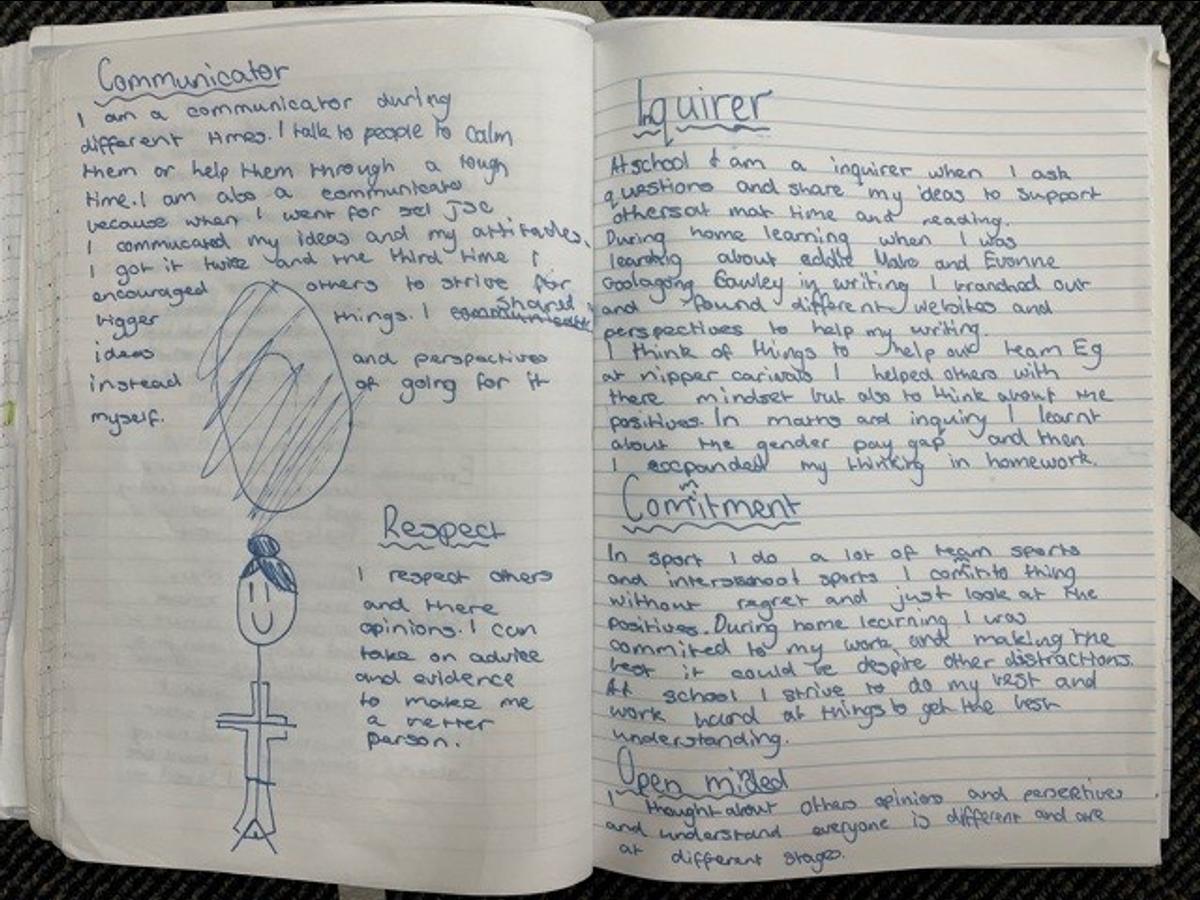 Communicator
I am a communicator during
different times. I talk to people to calm
them or help them through a tough
time. I am also a communicator
because when I went for JSC
I commucated my ideas and my attitudes.
I got it twice and the third time I
encouraged others to strive for
bigger things. I shared
ideas and perspectives
instead of going for it
myself.
Respect
I respect others
and there
opinions. I can
take on advice
and evidence
to make me
a better
person.
Inquirer
At school I am a inquirer when I ask
questions and share my ideas to support
others at mat time and reading.
During home learning when I was
learning about eddie Mabo and Evonne
Goolagong Cawley in writing I branched out
and found different websites and
perspectives to help my writing.
I think of things to help our team Eg
at nipper carivals I helped others with
there mindset but also to think about the
positives. In maths and inquiry I learnt
about the gender pay gap and then
I excpanded my thinking in homework.
Commitment
In sport I do a lot of team sports
and interschool sports I commit to thing
without regret and just look at the
positives. During home learning I was
commited to my work and making the
best it could be despite other distractions.
At school I strive to do my best and
work hard at things to get the best
understanding.
Open minded
I thought about others opinions and perspectives
and understand everyone is different and are
at different stages.